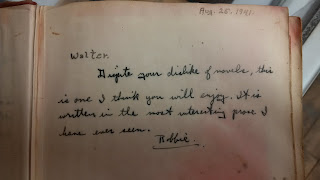 Aug. 25. 1941.
Walter.
Despite your dislike of novels, this
is one I think you will enjoy. It is
written in the most interesting prose I
have ever seen.
Bobbie.